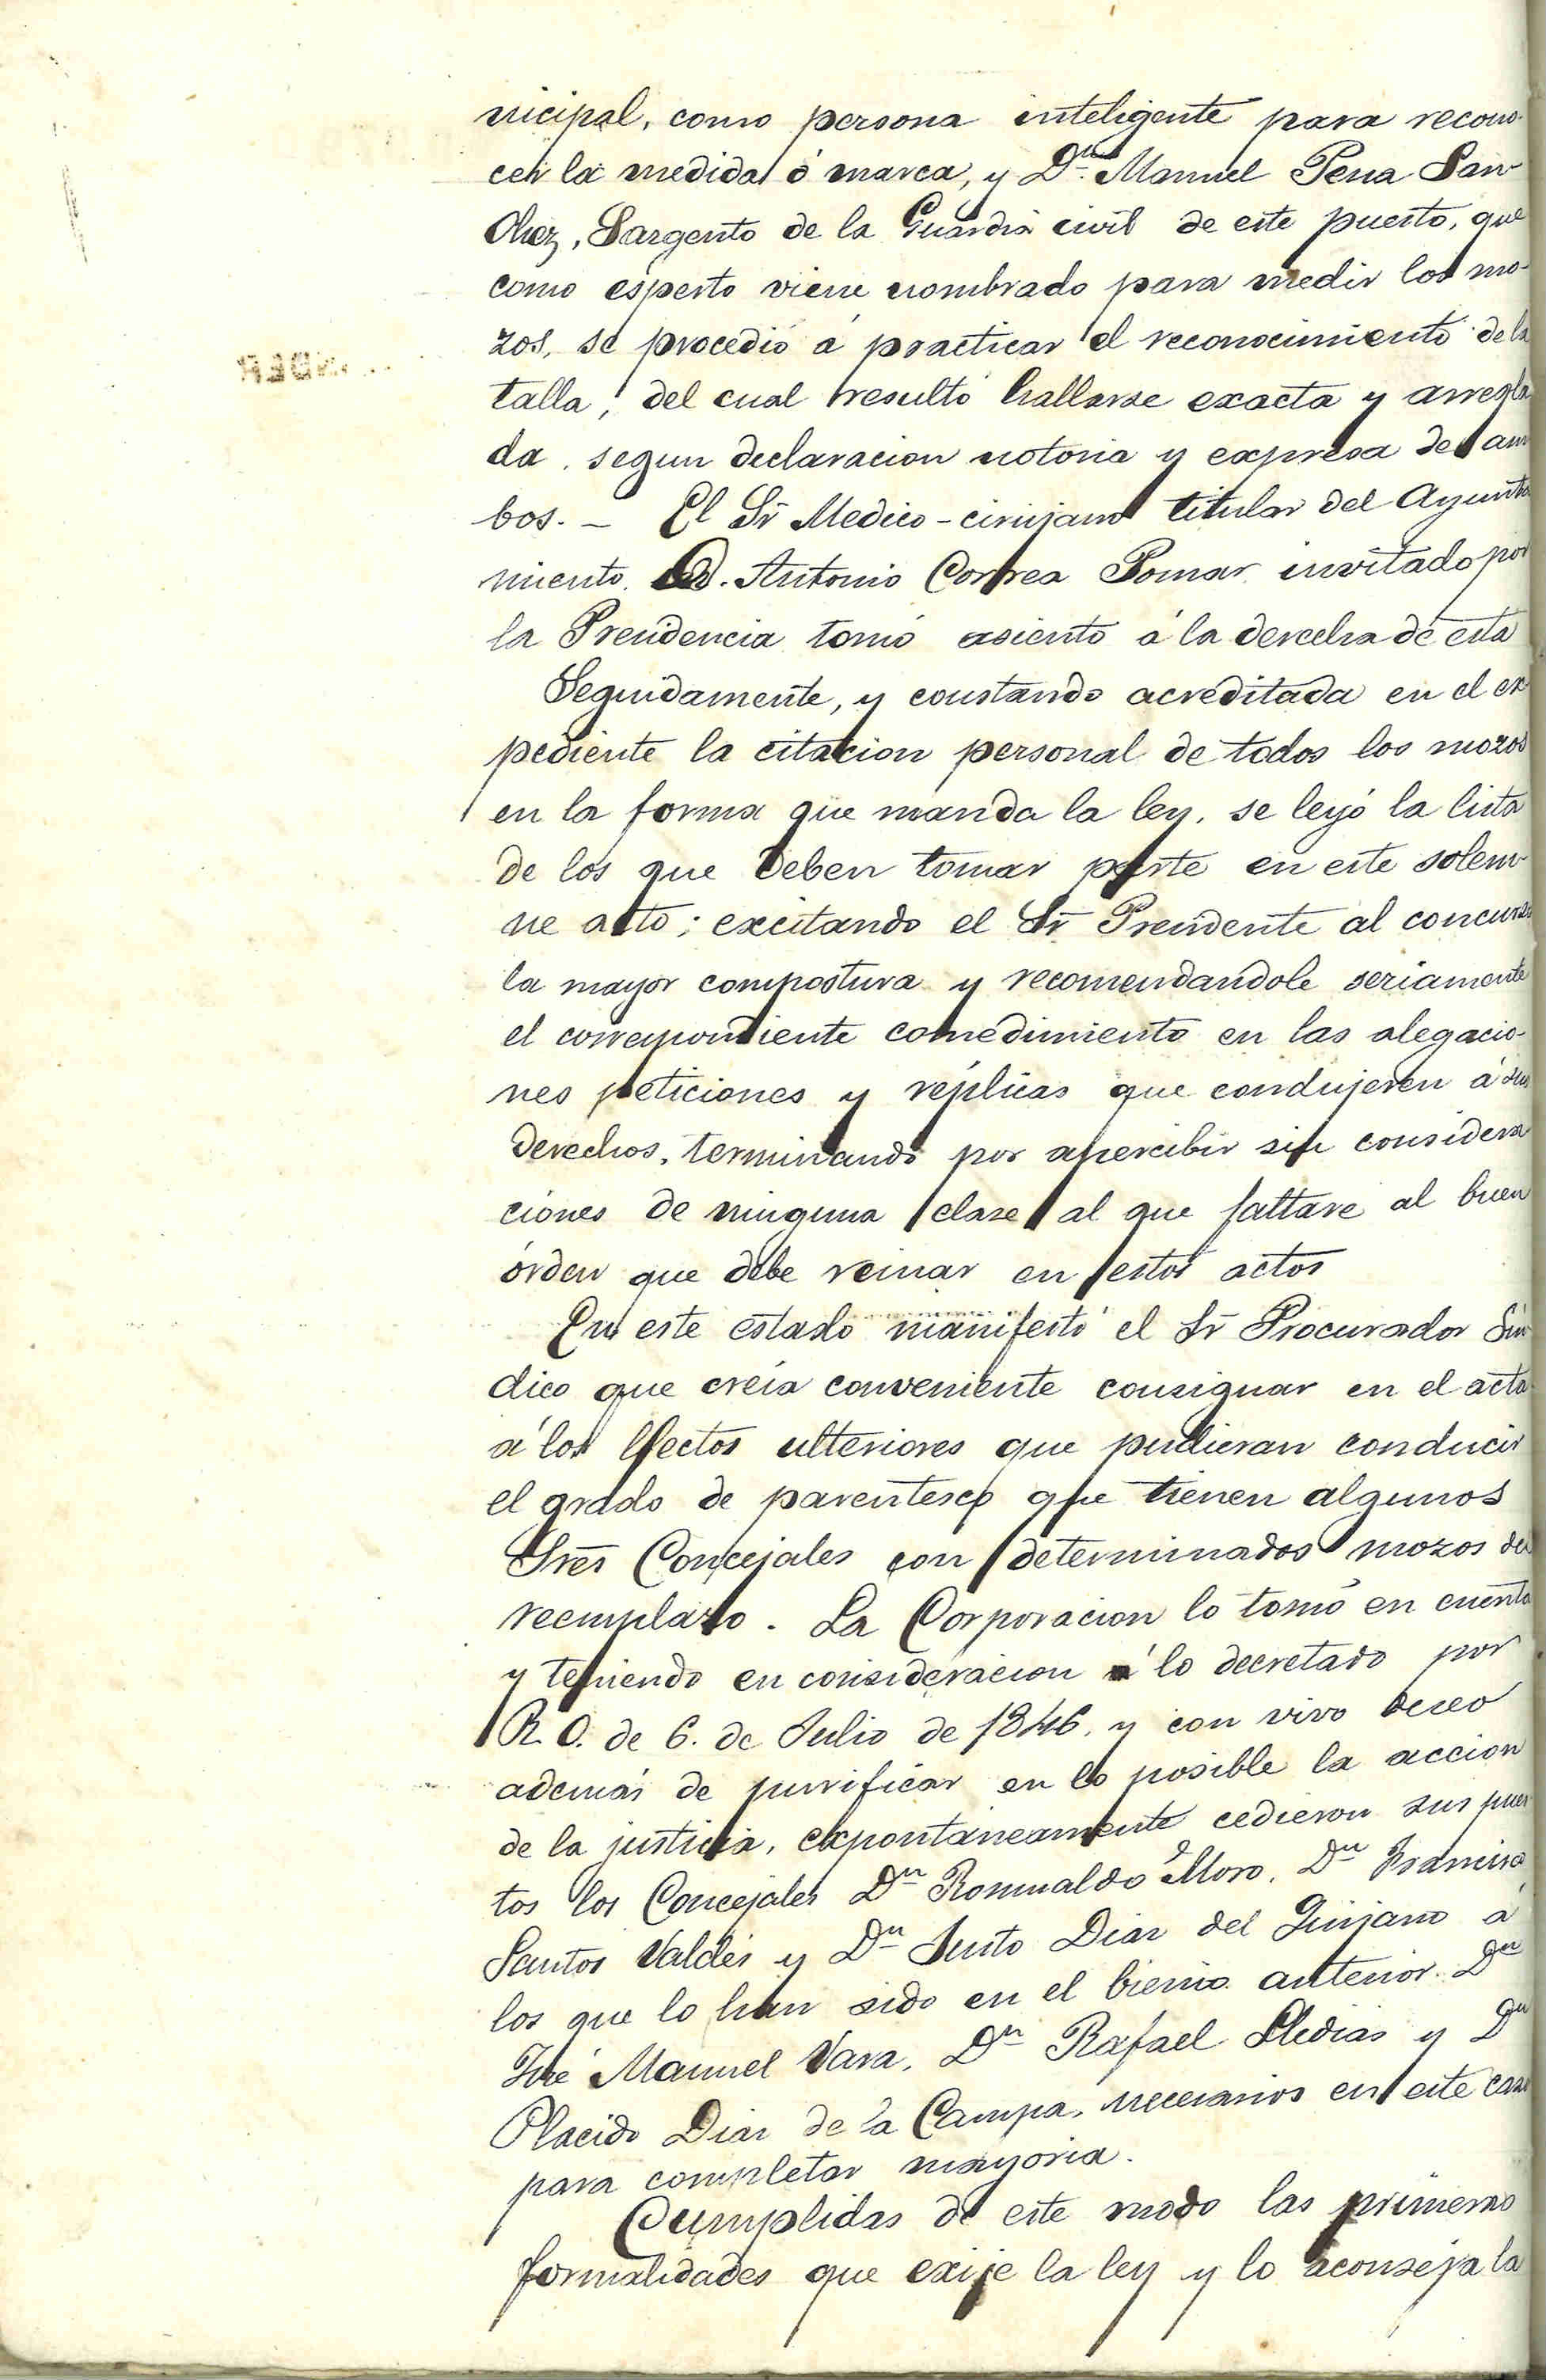 nicipal, como persona inteligente para recono-
cer la medida ó marca, y Dn. Manuel Pena San-
chez, Sargento de la Guardia civil de este puesto, que
como esperto viene nombrado para medir los mo-
zos, se procedió á practicar el reconocimiento de la
talla, del cual resultó hallarse exacta y arregla
da, segun declaracion notoria y expresa de am
bos. - El Sr Medico-cirujano titular del Ayunta
miento D. Antonio Correa Pomar invitado por
la Presidencia tomó asiento á la derecha de esta
Seguidamente, y constando acreditada en el ex
pediente la citacion personal de todos los mozos
en la forma que manda la ley, se leyó la lista
de los que deben tomar parte en este solem-
ne acto; excitando el Sr Presidente al concurso
la mayor compostura y recomendandole seriamente
el correspondiente comedimiento en las alegacio-
nes peticiones y réplicas que condujeren á sus
derechos, terminando por apercibir sin considera
ciones de ninguna clase al que faltare al buen
órden que debe reinar en estos actos
En este estado manifestó el Sr Procurador Sin
dico que creia conveniente consignar en el acta
á los efectos ulteriores que pudieran conducir
el grado de parentesco que tienen algunos
Sres Concejales con determinados mozos del
reemplazo. La Corporacion lo tomó en cuenta
y teniendo en consideracion á lo decretado por
R. O. de 6. de Julio de 1846. y con vivo deseo
además de purificar en lo posible la accion
de la justicia, expontáneamente cedieron sus pues
tos los Concejales Dn Romualdo Moro, Dn Francisco
Santos Valdés y Dn Justo Diaz del Quijano á
los que lo han sido en el bienio anterior. Dn
José Manuel Vara, Dn Rafael Pledias y Dn
Placido Diaz de la Campa, necesarios en este caso
para completar mayoria.
Cumplidas de este modo las primeras
formalidades que exije la ley y lo aconseja la